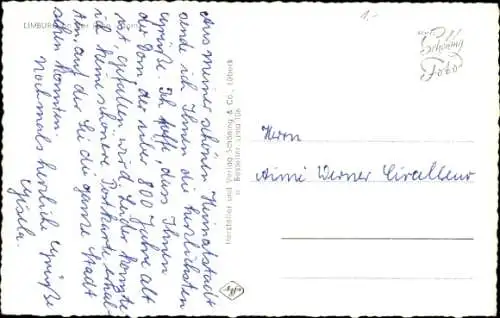 LIMBURG
1.-
Schöning
Foto
Aus meiner schönen Heimatstadt
sende ich Ihnen die herzlichsten
Grüße. Ich hoffe, dass Ihnen
der Dom der über 800 Jahre alt
ist, gefallen wird. Leider konnte
ich keine schönere Postkarte erhal-
ten, auf der Sie die ganze Stadt
sehen konnten.
Nochmals herzliche Grüße
Gisela.
Hersteller und Verlag Schöning & Co., Lübeck
Bestellnr.
Herrn
Aimé Werner